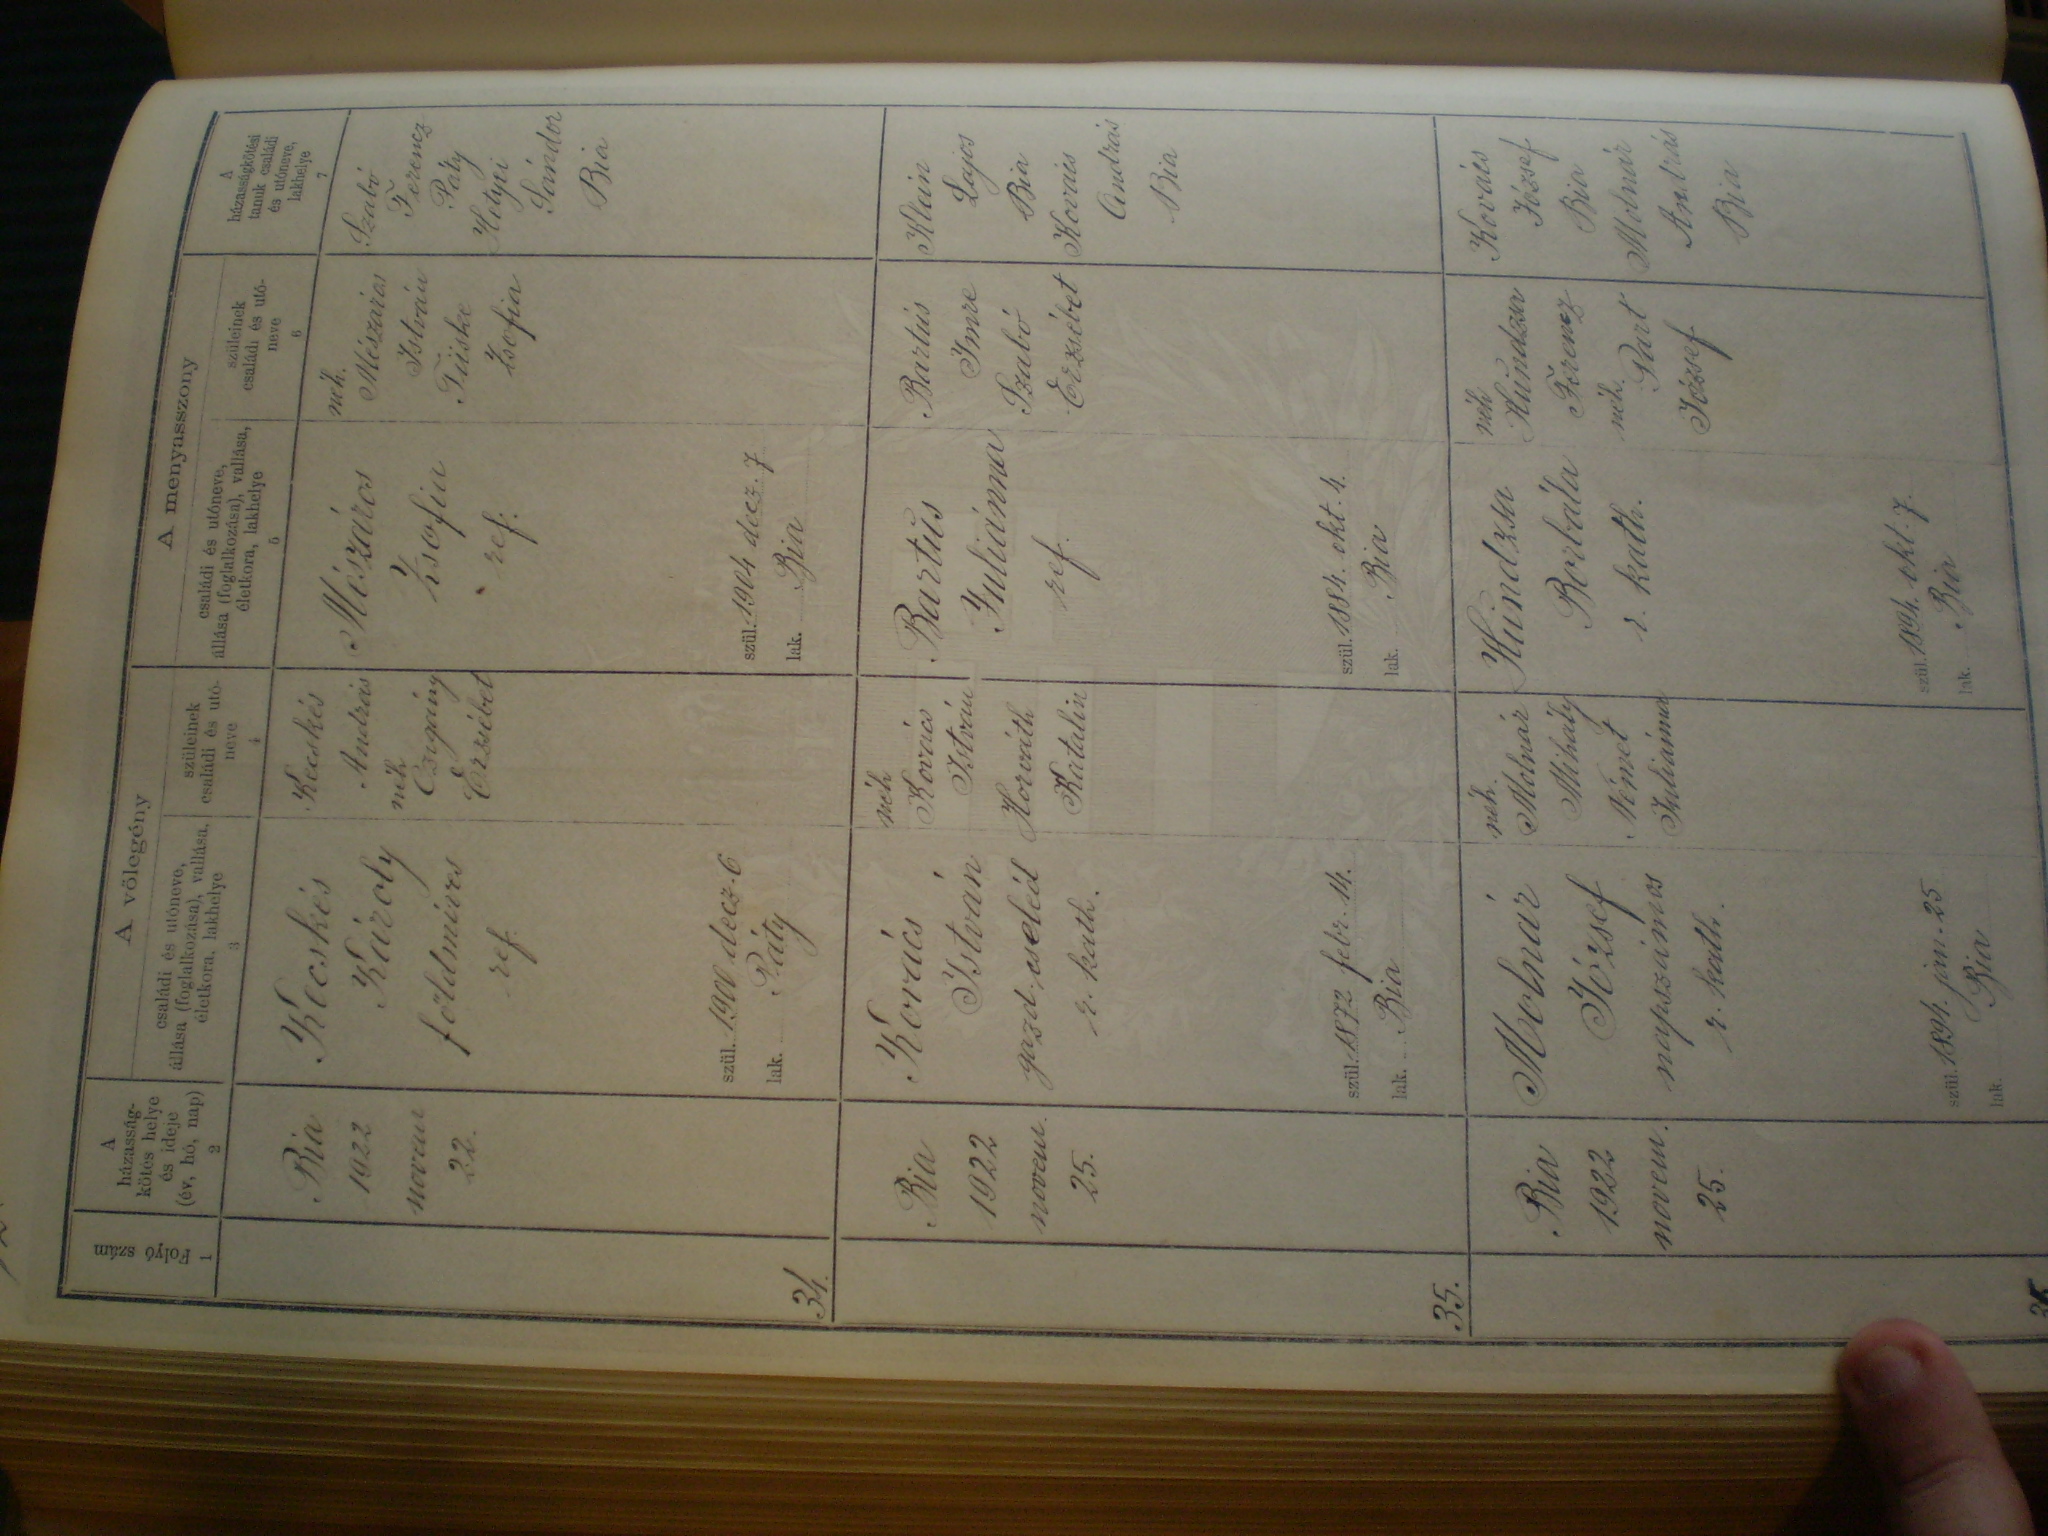 1
Folyó szám
A
házasság-
kötés helye
és ideje
(év, hó, nap)
2
A vőlegény
családi és utóneve,
állása (foglalkozása), vallása,
életkora, lakhelye
3
szüleinek
családi és utó-
neve
4
A menyasszony
családi és utóneve,
állása (foglalkozása), vallása,
életkora, lakhelye
5
szüleinek
családi és utó-
neve
6
A
házasságkötési
tanuk családi
és utóneve,
lakhelye
7
34.
Bia
1922
novem
22.
Kecskés
Károly
földmíves
ref.
szül. 1900 decz. 6
lak. Páty
Kecskés
András
néh
Czigány
Erzsébet
Mészáros
Zsofia
ref.
szül. 1904 decz. 7
lak. Bia
néh.
Mészáros
István
Tüske
Zsofia
Szabó
Ferencz
Páty
Sándor
Bia
35.
Bia
1922
novem.
25.
Kovács
István
gazd. cseléd
r. kath.
szül. 1872 febr. 14.
lak. Bia
néh
Kovács
István
Horváth
Katalin
Bartus
Juliánna
ref.
szül. 1884. okt. 4.
lak. Bia
Bartus
Imre
Szabó
Erzsébet
Klain
Lajos
Bia
Kovács
András
Bia
36
Bia
1922
novem.
25.
Molnár
József
napszámos
r. kath.
szül. 1894. jan. 25
lak. Bia
néh.
Molnár
Mihály
Német
Juliánna
Hundzsa
Borbála
r. kath.
szül. 1894. okt. 7.
lak. Bia
néh
Hundzsa
Ferencz
néh.
Part
József
Kovács
József
Bia
Molnár
András
Bia